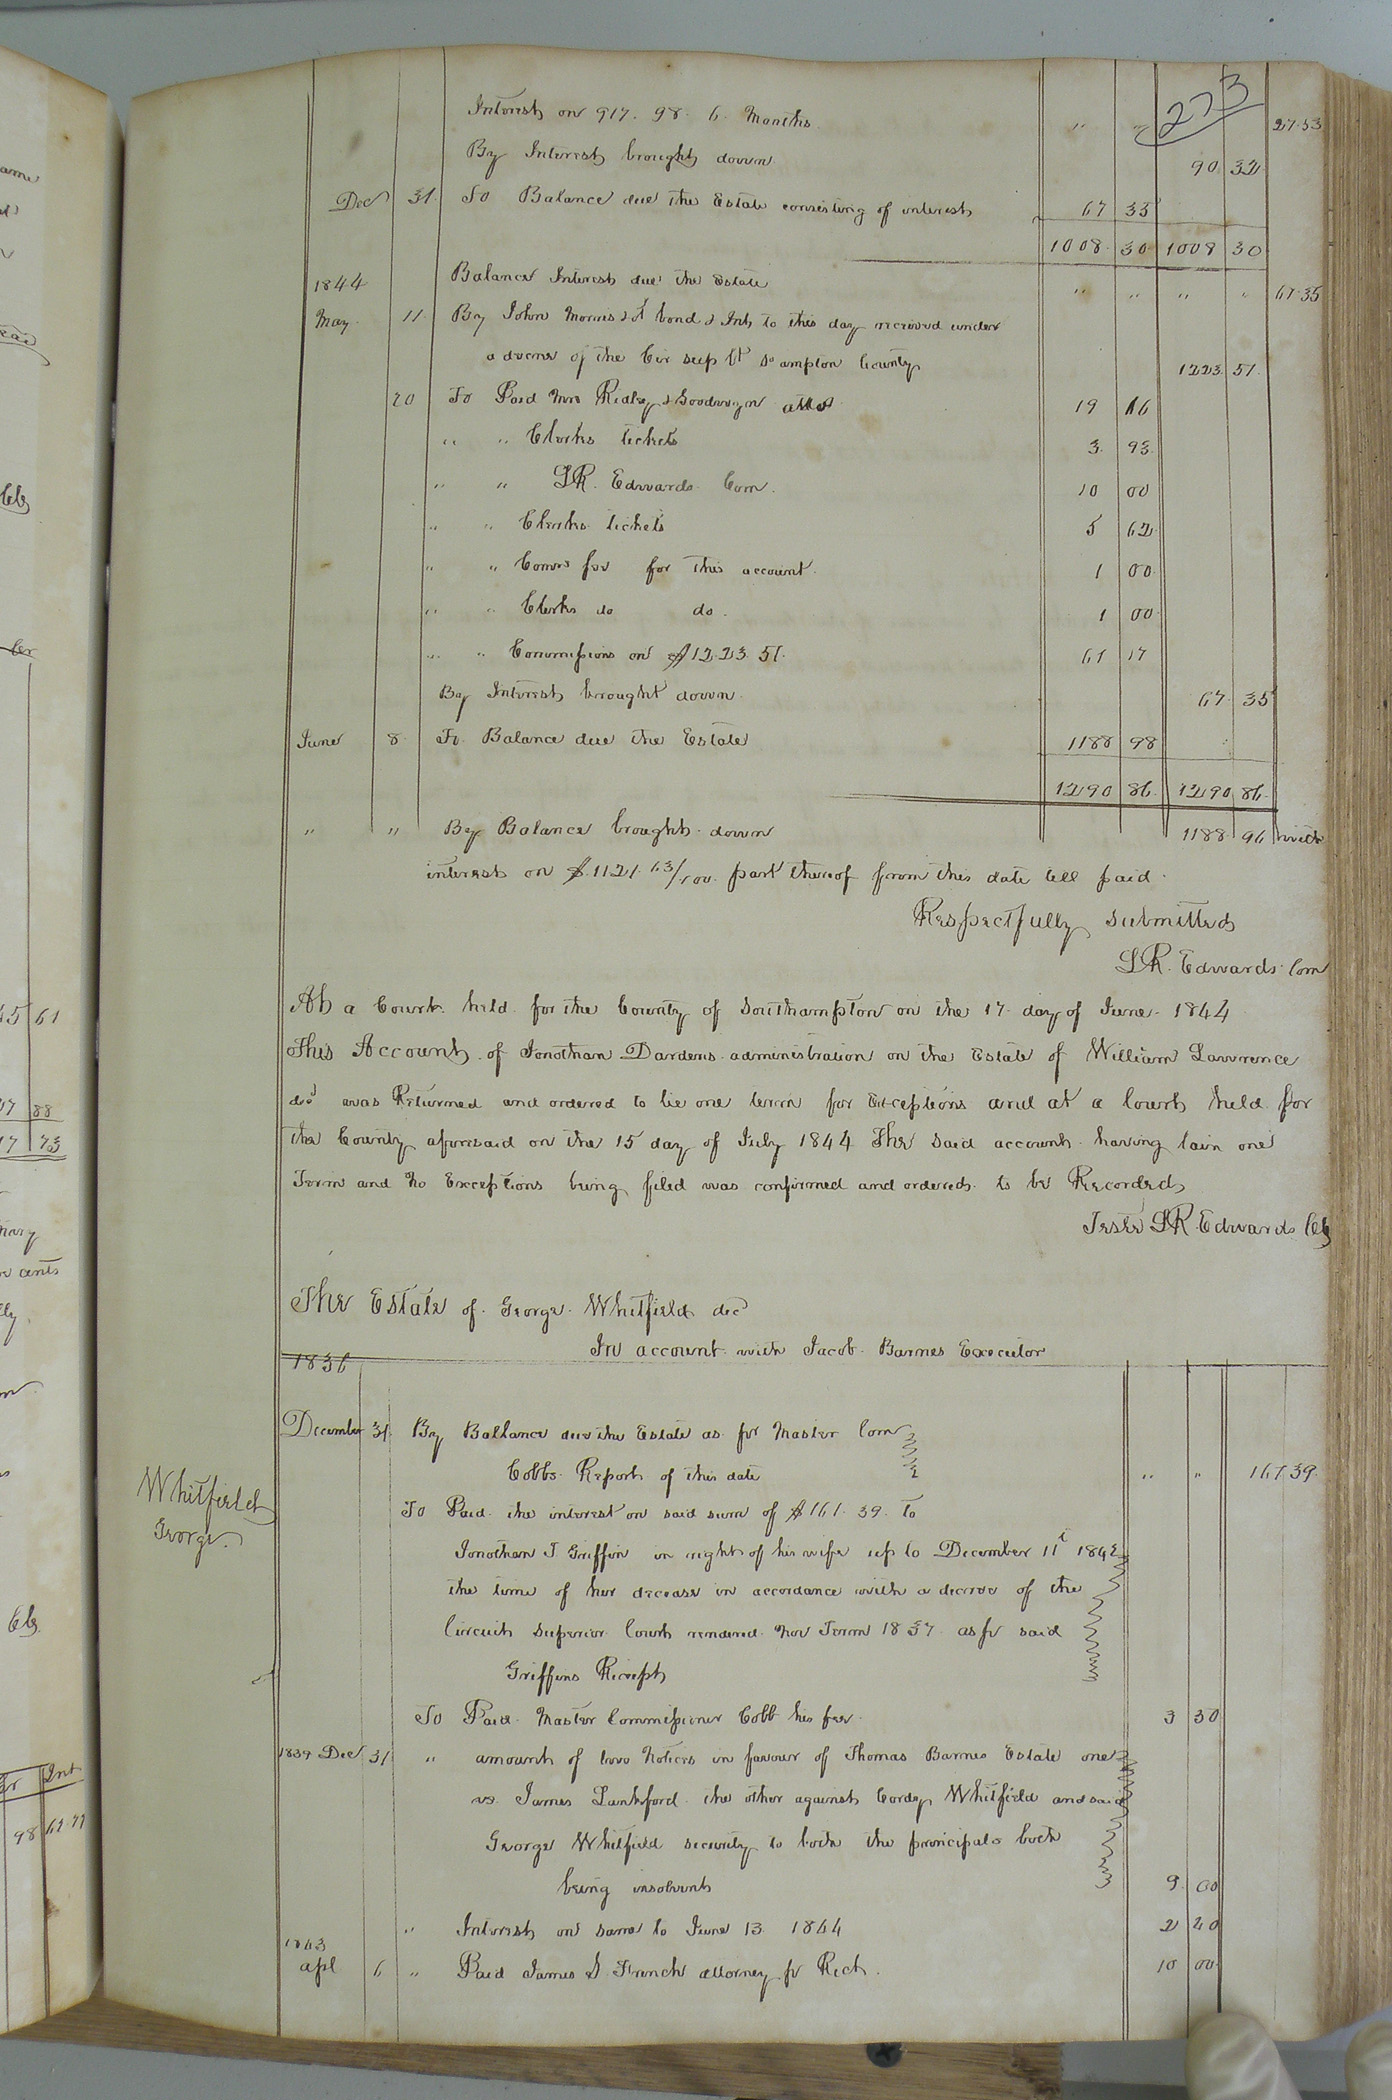 273
Interest on 917. 98. 6. Months " " 27.53
By Interest brought down 90 32
Dec 31. To Balance due the Estate consisting of interest 67 35
1008. 30 1008 30
1844 Balance Interest due the Estate " " " " 67.35
May 11. By John Morris & bond & Int to this day received under
a decree of the Cir Sup Ct So ampton County 1223. 51
20 To Paid Mrs Ridley & Goodwyn 19 16
" " Clerks tickets 3. 93
" " LR. Edwards Com. 10 00
" " Clerks tickets 5 62
" " Comrs fee for this account 1 00
" " Clerks do do. 1 00
" " Commissions on $1223.51. 61 17
By Interest brought down. 67. 35
June 8 To Balance due the Estate 1188 98
1290 86. 1290 86.
" " By Balance brought down 1188. 96 with
interest on $.1121. 63/100. part thereof from this date till paid.
Respectfully submitted
LR. Edwards Com
At a Court held for the County of Southampton on the 17 day of June 1844
This Account of Jonathan Dardens administration on the Estate of William Lawrence
decd was Returned and ordered to lie one term for Exceptions and at a Court held for
the County aforesaid on the 15 day of July 1844 The said account having lain one
Term and No Exceptions being filed was confirmed and ordered to be Recorded
Teste LR. Edwards Clk
The Estate of George Whitfield dec
In account with Jacob Barnes Executor
1836
December 31. By Ballance due the Estate as pr Master Com
Cobbs Report of this date " " 161 39.
Whitfield
George.
To Paid the interest on said sum of $161.39. to
Jonathan T Griffin in right of his wife up to December 11t 1842
the time of her decease in accordance with a decree of the
Circuit Superior Court rendered Nov Term 1837 as pr said
Griffins Receipt
To Paid Master Commissioner Cobb his fee 3 30
1839 Dec 31 " amount of two Notices in favour of Thomas Barnes Estate one
vs James Lankford the other against Cordy Whitfield and said
George Whitfield security to both the principals both
being insolvent 9. 00
" Interest on same to June 13. 1844 2 40
1843
apl 6 " Paid James S. French attorney pr Rect. 10 00